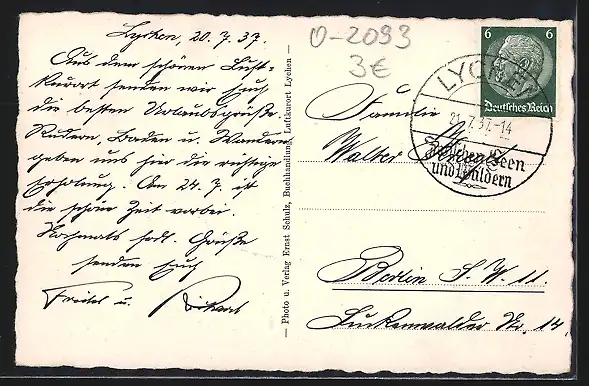 Lychen, 20. 7. 37.
Aus dem schönen Luft-
kurort senden wir Euch
die besten Urlaubsgrüße.
Rudern, Baden u. Wandern
geben uns hier die richtige
Erholung. Am 24. 7. ist
die schöne Zeit vorbei.
Nochmals herzl. Grüße
senden Euch
u.
Photo u. Verlag Ernst Schulz, Buchhandlung, Luftkurort Lychen
0-2093
3€
6 6
Deutsches Reich
LYCHEN
21.7.37.-14
Zwischen Seen
und Wäldern
Familie
Walter
Berlin S. W. 11.
Luckenwalder Str. 14.